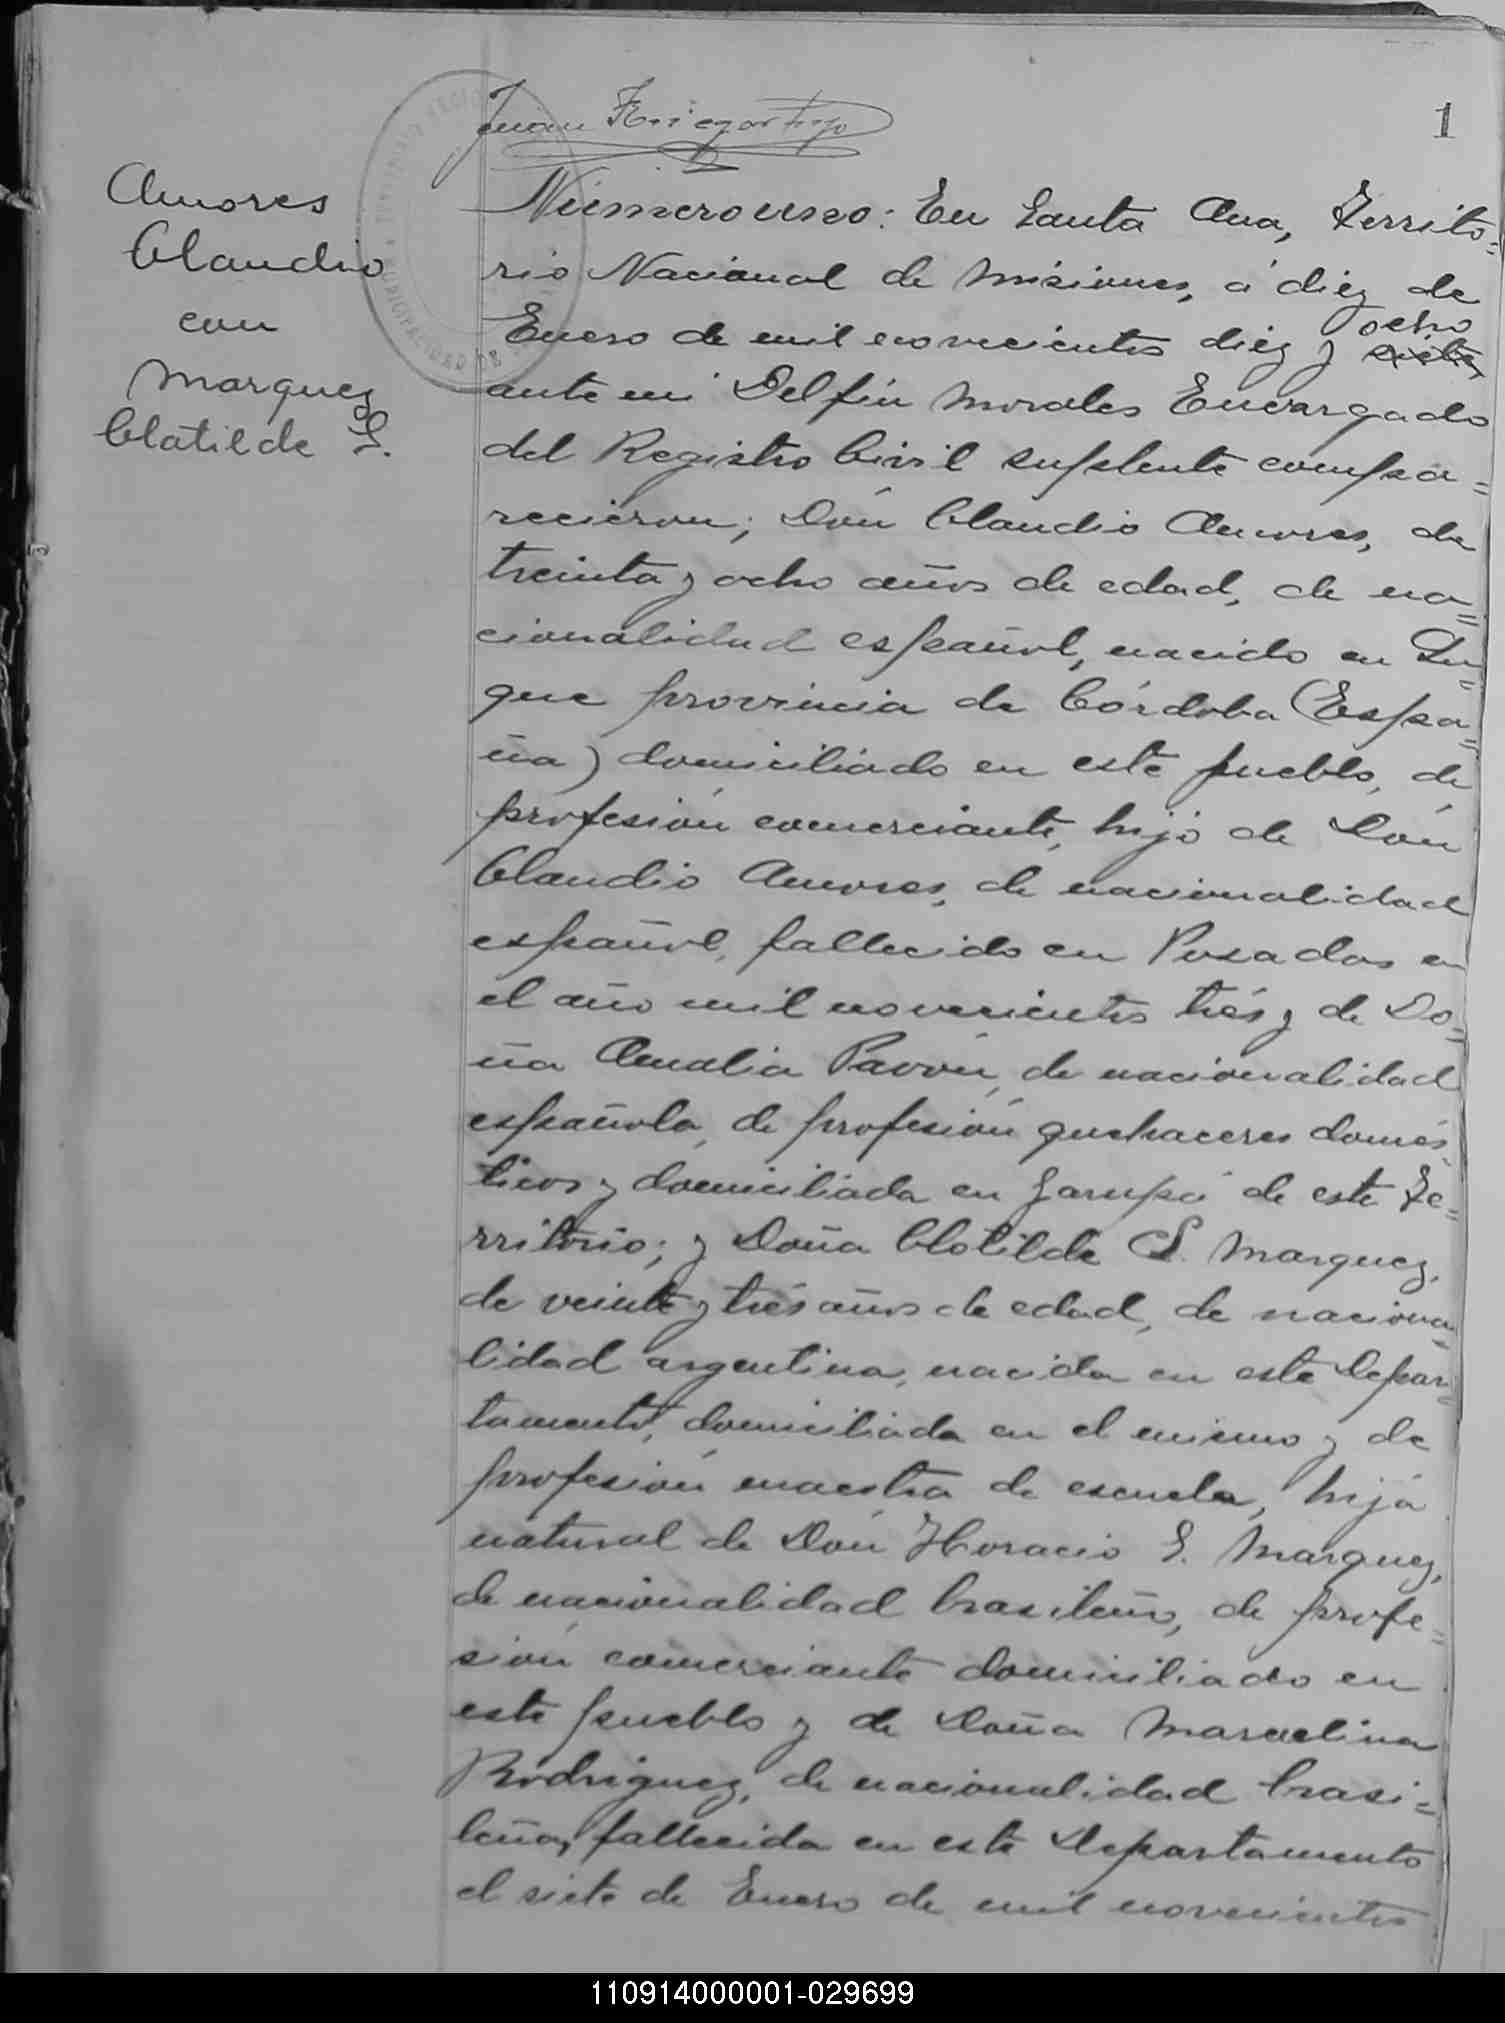 1
Juan
Amores
Claudio
con
Marquez
Clotilde S.
Número uno: En Santa Ana, Territo=
rio Nacional de Misiones, á diez de
Enero de mil novecientos diez y siete ocho
ante mi Delfín Morales Encargado
del Registro Civil suplente compa=
recieron; Dón Claudio Amores, de
treinta y ocho años de edad, de na=
cionalidad español, nacido en Lu=
que provincia de Córdoba (Espa=
ña) domiciliado en este pueblo, de
profesión comerciante, hijo de Dón
Claudio Amores, de nacionalidad
español, fallecido en Posadas en
el año mil novecientos trés y de Do=
ña Amalia Pavón, de nacionalidad
española, de profesión quehaceres domés=
ticos y domiciliada en Garupá de este Te=
rritorio; y Doña Clotilde S. Marquez,
de veinte y trés años de edad, de naciona=
lidad argentina, nacida en este Depar=
tamento, domiciliada en el mismo y de
profesión maestra de escuela, hija
natural de Dón Horacio S. Marquez,
de nacionalidad brasileño, de profe=
sión comerciante domiciliado en
este pueblo y de Doña Marcelina
Rodriguez, de nacionalidad brasi=
leña, fallecida en este Departamento
el siete de Enero de mil novecientos
110914000001-029699